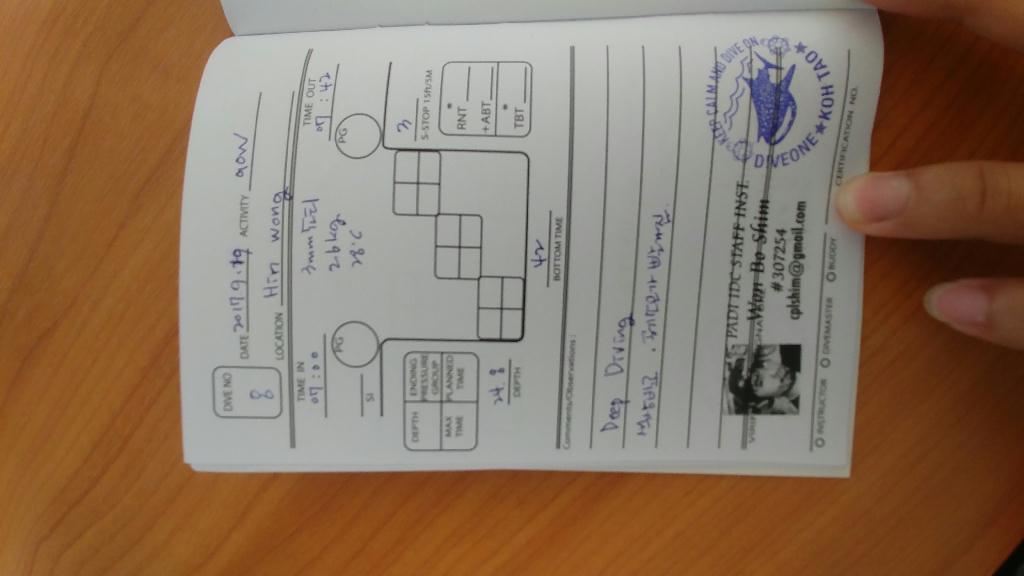 DIVE NO 8
DATE 2017.9.19 ACTIVITY AOW
LOCATION Hin wong
TIME IN 07:00
TIME OUT 07:42
3mm
24kg
28.C
SI
PG
PG
3
S-STOP 15ft/5M
DEPTH
ENDING PRESSURE GROUP
MAX TIME
PLANNED TIME
RNT*
+ABT
TBT*
24.8
DEPTH
42
BOTTOM TIME
Comments/Observations:
Deep Diving
PADI IDC STAFF INST.
Won Bo Shim
#307254
cplshim@gmail.com
KEEP CALM AND DIVE ON
DIVEONE ★ KOH TAO ★
INSTRUCTOR
DIVEMASTER
BUDDY
CERTIFICATION NO.